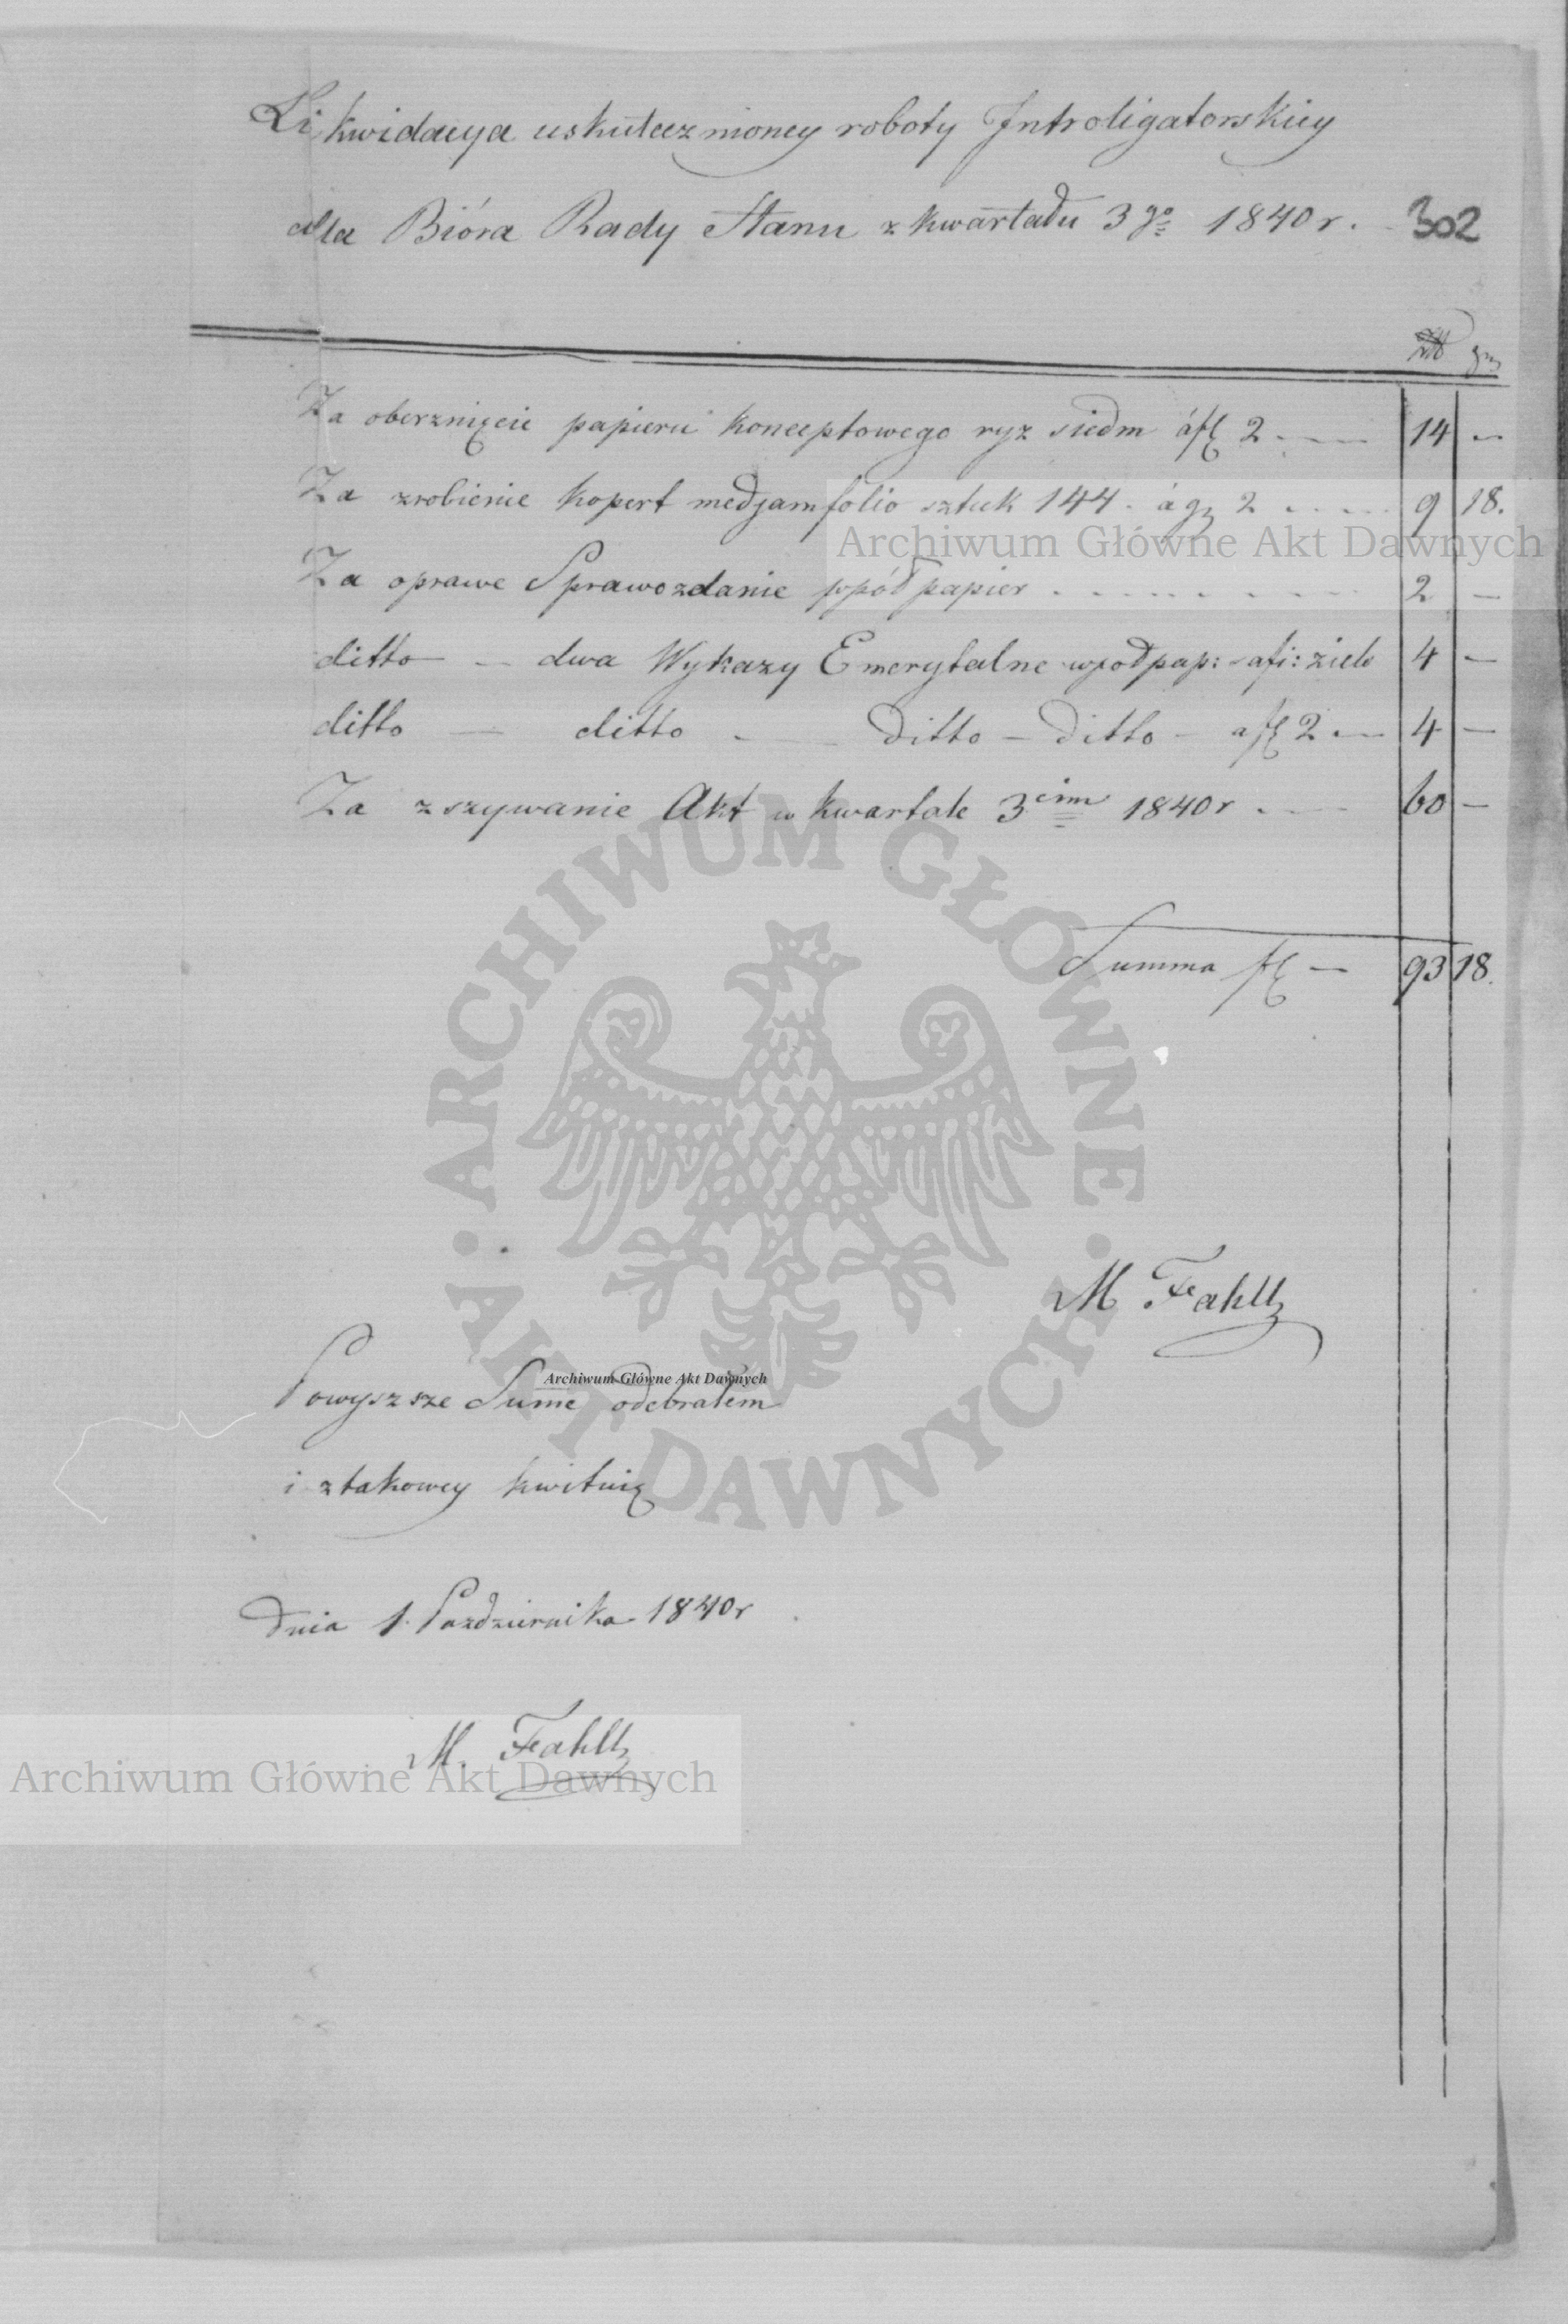 Likwidacya uskutecznioney roboty Introligatorskiey
dla Bióra Rady Stanu z kwartału 3go 1840 r.
302
zł gr
Za oberznięcie papieru konceptowego ryz siedm á fl 2 14 —
Za zrobienie kopert medjam folio sztuk 144 . á gr 2 9 18.
Archiwum Główne Akt Dawnych
Za oprawe Sprawozdanie wpół papier 2 —
ditto — dwa Wykazy Emerytalne wpół pap: 4 —
ditto — ditto — ditto — ditto — a fl 2 — 4 —
Za zszywanie Akt w kwartale 3cim 1840 r 60 —
Summa fl — 93 18.
ARCHIWUM GŁÓWNE AKT DAWNYCH
M Fahltz
Archiwum Główne Akt Dawnych
Powyzsze Sume odebrałem
i ztakowey kwituię
Dnia 1. Pazdziernika 1840 r
M. Fahltz
Archiwum Główne Akt Dawnych